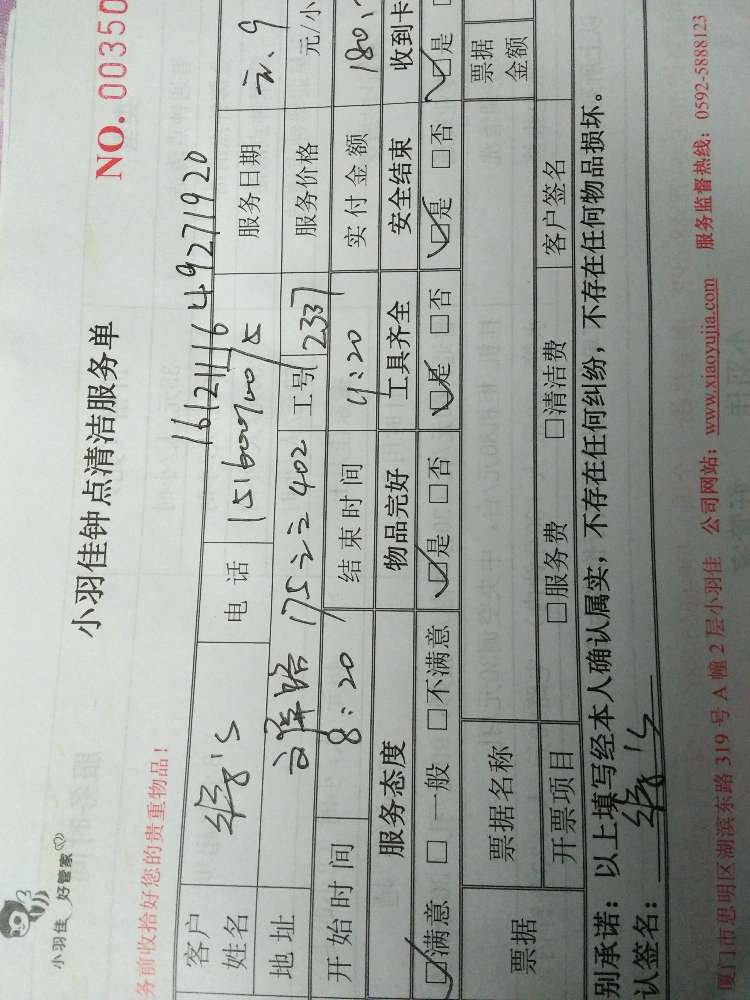 小羽佳 好管家
小羽佳钟点清洁服务单
NO. 00350
务前收拾好您的贵重物品！
16121116 49271920
客户姓名 电话 服务日期 2.9
地址 175 402 工号 2337 服务价格 元/小
开始时间 8:20 结束时间 11:20 实付金额 180.
服务态度 物品完好 工具齐全 安全结束 收到卡
☑满意 □一般 □不满意 ☑是 □否 ☑是 □否 ☑是 □否 ☑是
票据 票据名称 票据金额
开票项目 □服务费 □清洁费 客户签名
别承诺：以上填写经本人确认属实，不存在任何纠纷，不存在任何物品损坏。
认签名：
厦门市思明区湖滨东路 319 号 A 幢 2 层小羽佳 公司网站：www.xiaoyujia.com 服务监督热线：0592-5888123